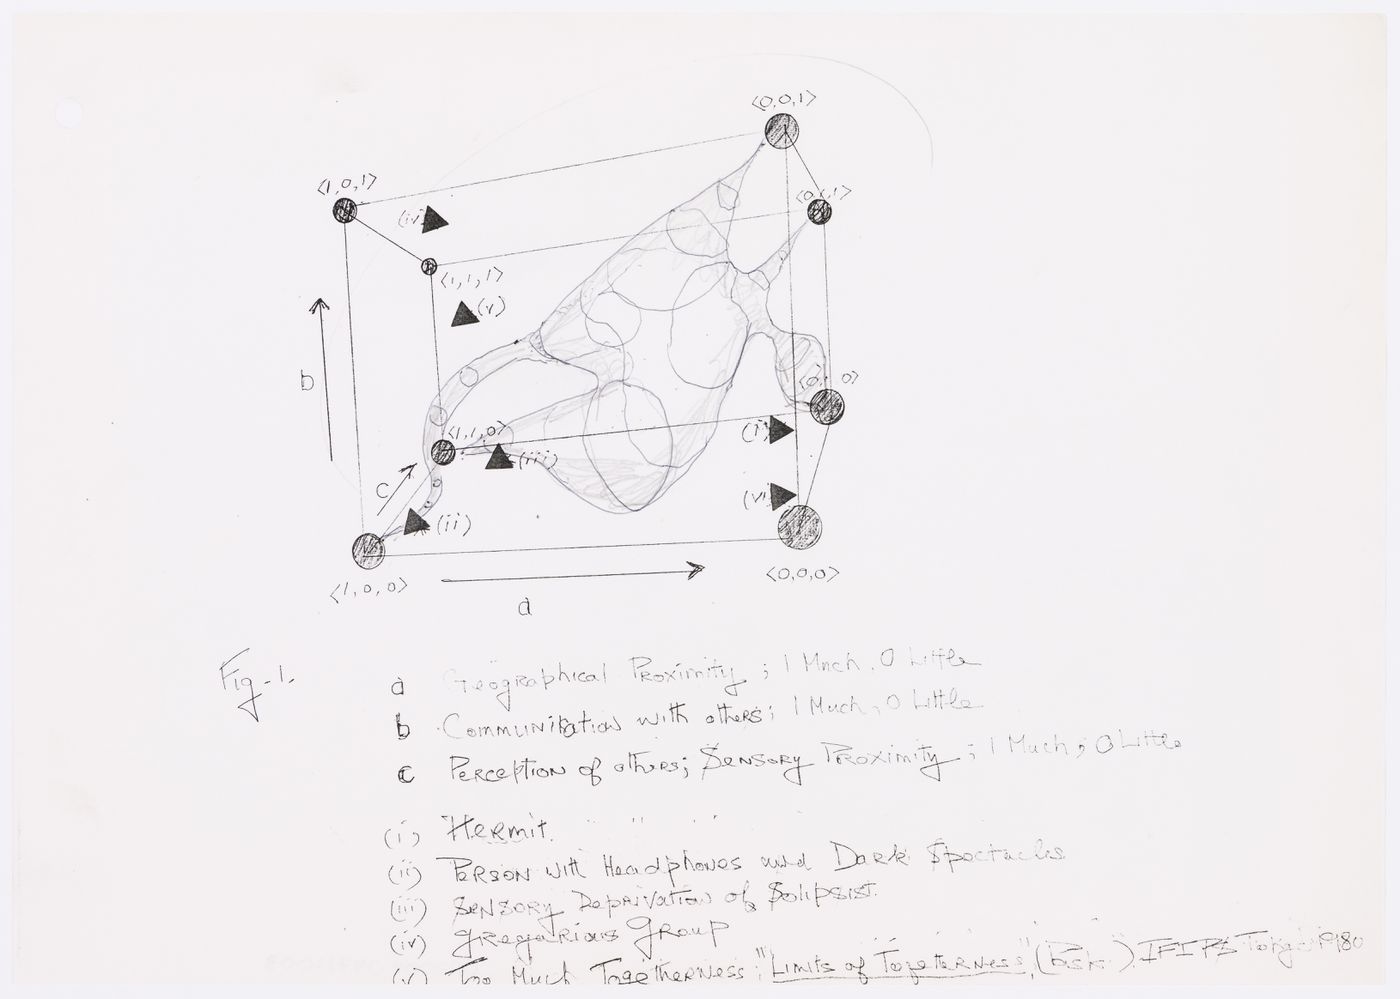 <0,0,1>
<1,0,1>
(iv)
<0,1,1>
<1,1,1>
(v)
b
<1,1,0>
(i)
(iii)
c
(vi
(ii)
<1,0,0>
<0,0,0>
a
Fig-1.
a Geographical Proximity ; 1 Much, 0 Little
b Communication with others; 1 Much, 0 Little
c Perception of others; Sensory Proximity ; 1 Much; 0 Little
(i) Hermit.
(ii) Person with Headphones and Dark Spectacles
(iii) Sensory Deprivation of Solipsist.
(iv) Gregarious Group
(v) Too Much Togetherness; "Limits of Togetherness", (Pask) IFIPS 1980